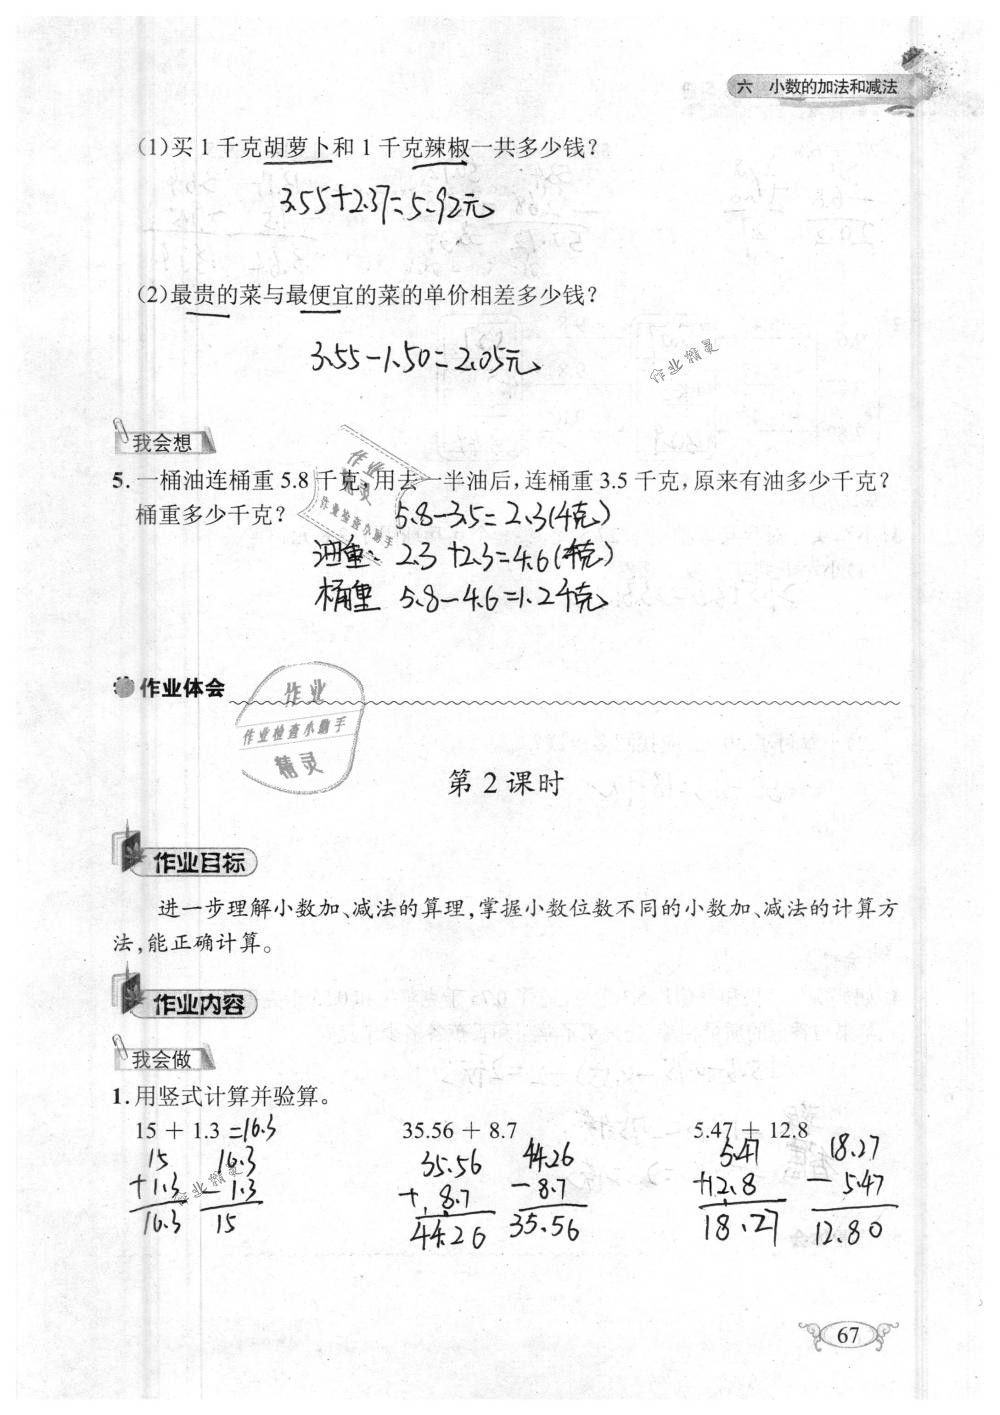 六 小数的加法和减法
(1)买1千克胡萝卜和1千克辣椒一共多少钱?
3.55+2.37=5.92元
(2)最贵的菜与最便宜的菜的单价相差多少钱?
3.55-1.50=2.05元
作业精灵
我会想
5.一桶油连桶重5.8千克,用去一半油后,连桶重3.5千克,原来有油多少千克?
桶重多少千克?
5.8-3.5=2.3(千克)
油重: 2.3+2.3=4.6(千克)
桶重 5.8-4.6=1.2千克
作业
精灵
作业检查小助手
作业体会
作业
作业检查小助手
精灵
第2课时
作业目标
进一步理解小数加、减法的算理,掌握小数位数不同的小数加、减法的计算方
法,能正确计算。
作业内容
我会做
1.用竖式计算并验算。
15+1.3=16.3 35.56+8.7 5.47+12.8
15 16.3 35.56 44.26 5.47 18.27
+1.3 -1.3 +8.7 -8.7 +12.8 -5.47
16.3 15 44.26 35.56 18.27 12.80
作业精灵
67